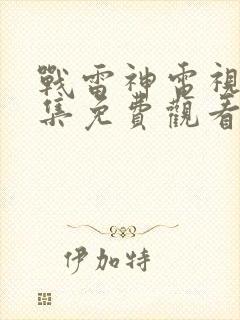 戰雷神電視
集免費觀看
伊加特